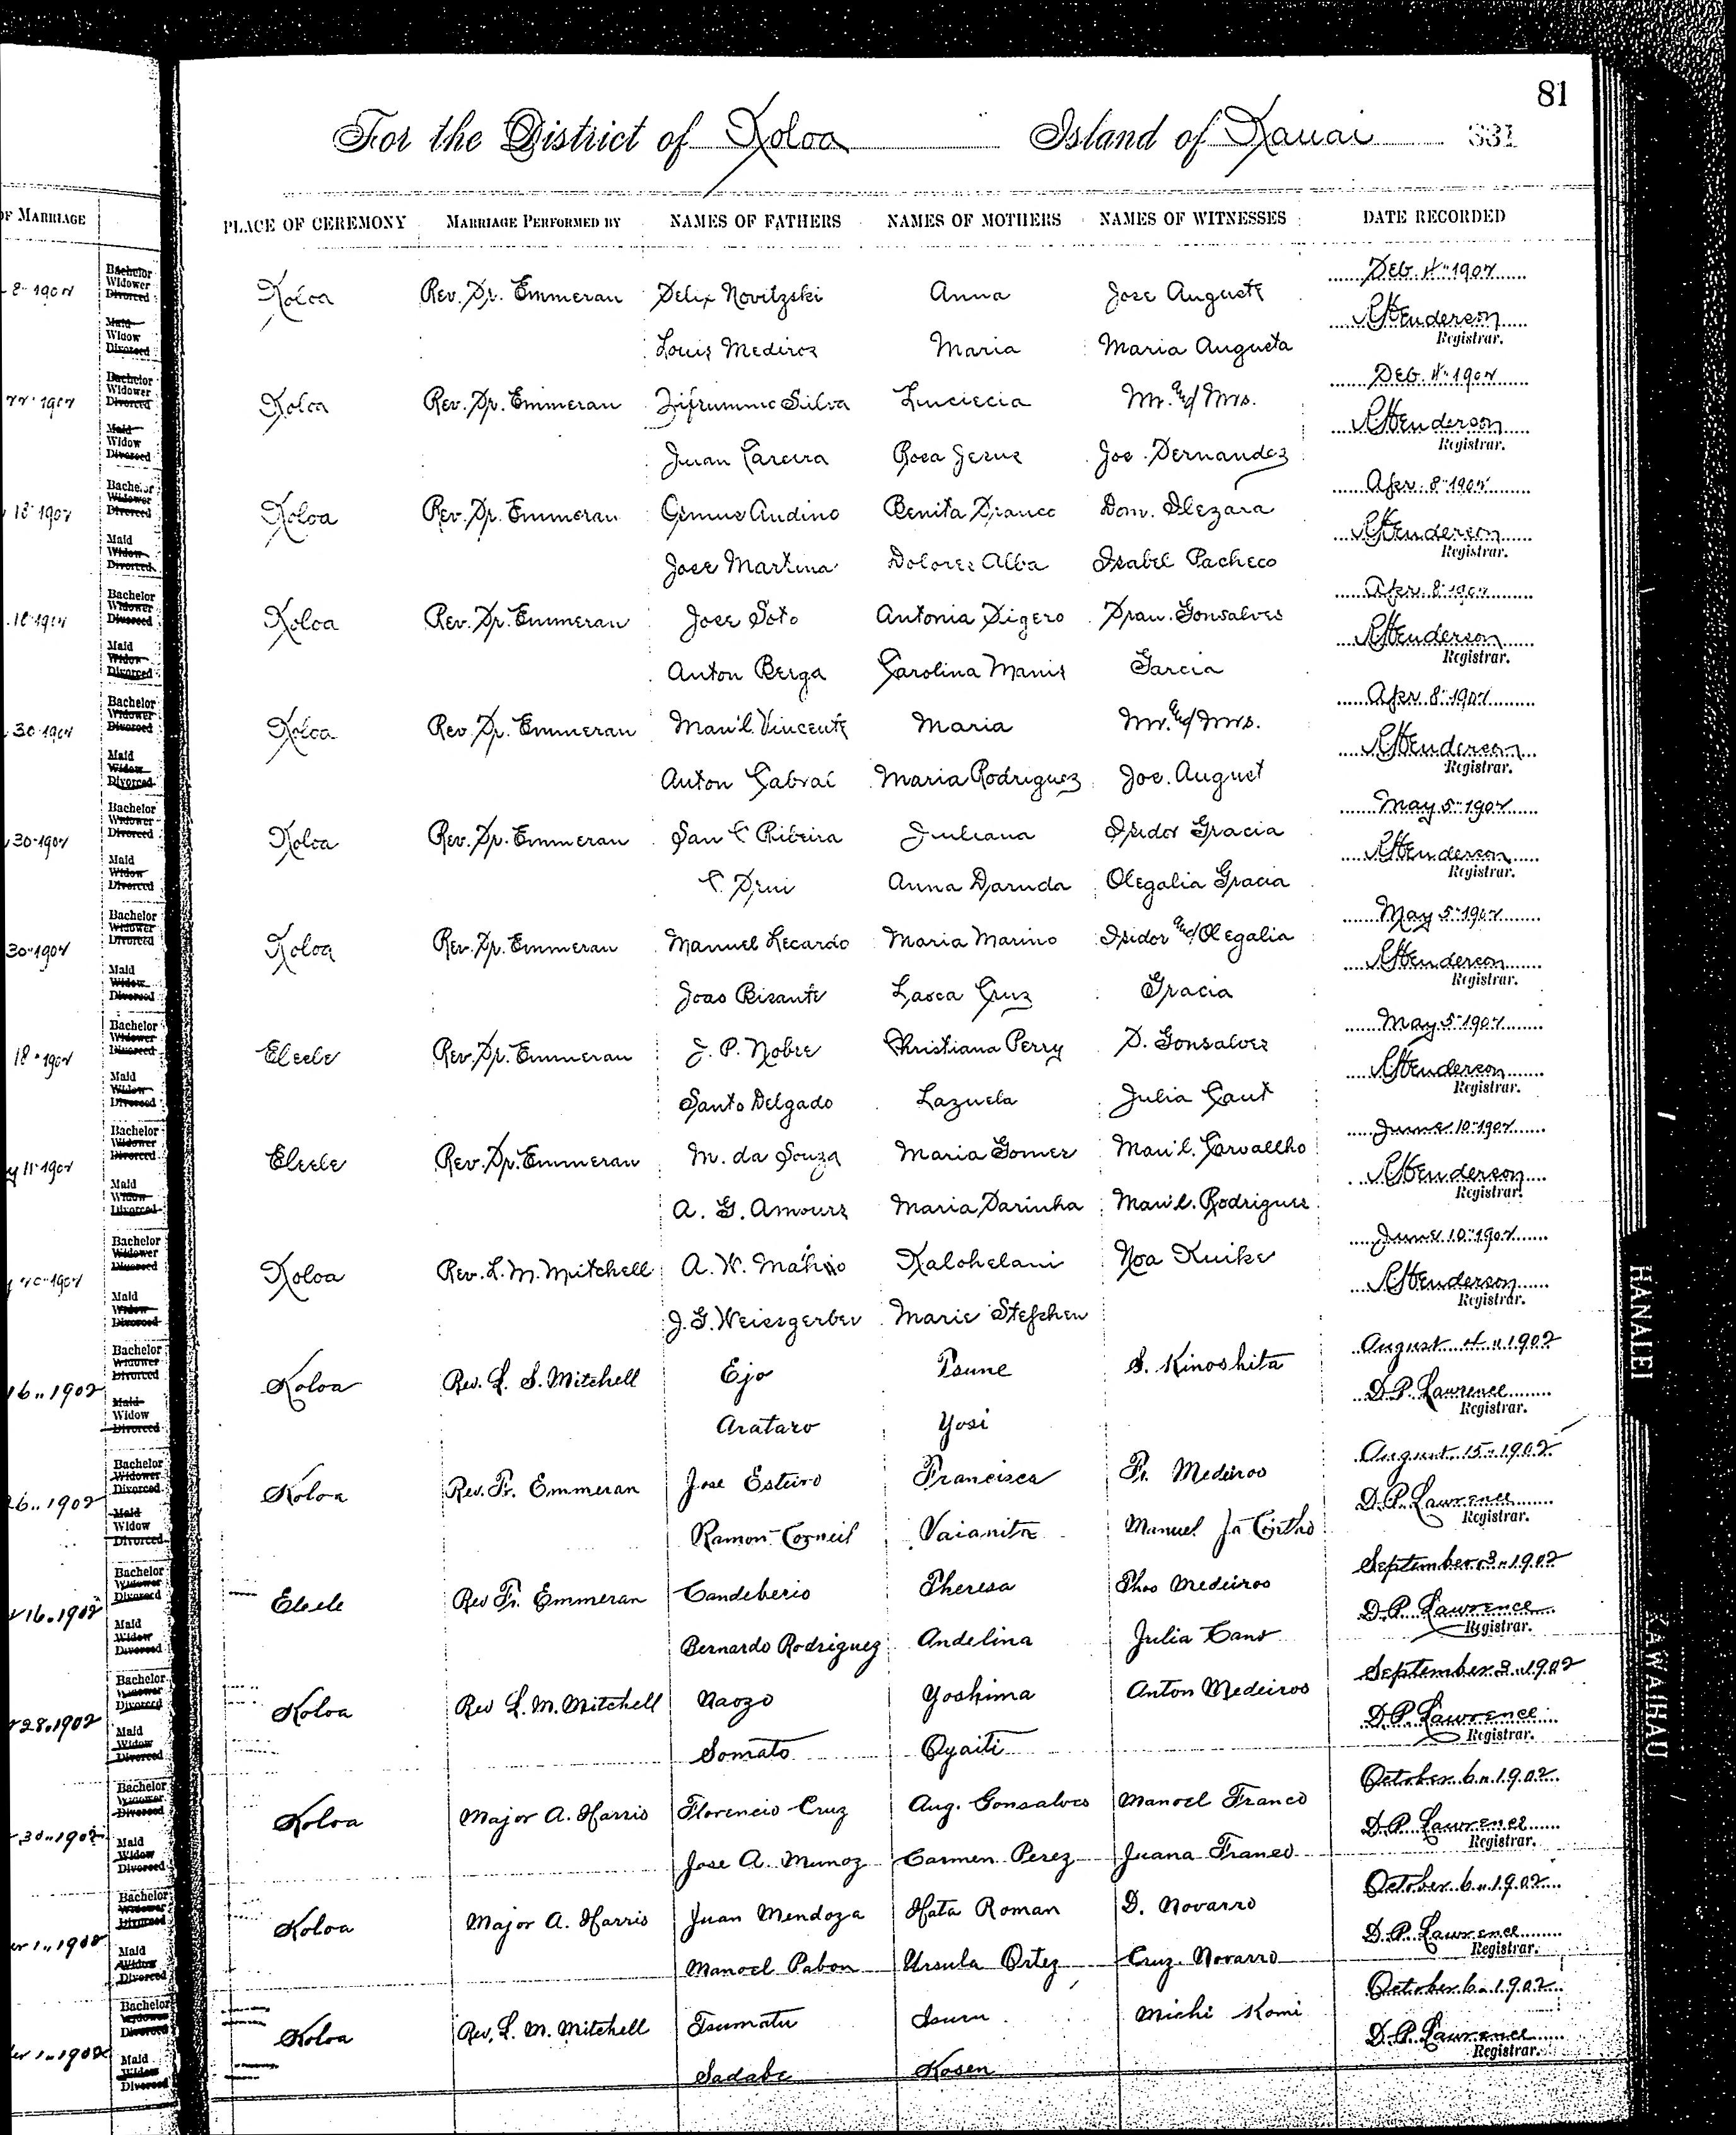 81
For the District of Koloa Island of Kauai 331
OF MARRIAGE PLACE OF CEREMONY MARRIAGE PERFORMED BY NAMES OF FATHERS NAMES OF MOTHERS NAMES OF WITNESSES DATE RECORDED
8" 1902 Bachelor Widower Divorced Koloa Rev. Fr. Emmeran Felix Novitzski Anna Jose August Feb. 4" 1902
Maid Widow Divorced Louis Medires Maria Maria Augusta RHenderson Registrar.
22" 1902 Bachelor Widower Divorced Koloa Rev. Fr. Emmeran Silva Mr. and Mrs. Feb. 4" 1902
Maid Widow Divorced Juan Careira Rosa Jesus Joe Fernandez RHenderson Registrar.
18" 1902 Bachelor Widower Divorced Koloa Rev. Fr. Emmeran Andino Benita Franco Dom. Apr. 8" 1902
Maid Widow Divorced Jose Martina Dolores Alba Isabel Pacheco RHenderson Registrar.
18" 1902 Bachelor Widower Divorced Koloa Rev. Fr. Emmeran Jose Soto Antonia Figero Fran. Gonsalves Apr. 8" 1902
Maid Widow Divorced Anton Berga Carolina Manis Garcia RHenderson Registrar.
30" 1902 Bachelor Widower Divorced Koloa Rev. Fr. Emmeran Man'l. Vincente Maria Mr. and Mrs. Apr. 8" 1902
Maid Widow Divorced Anton Cabral Maria Rodriguez Joe. August RHenderson Registrar.
30" 1902 Bachelor Widower Divorced Koloa Rev. Fr. Emmeran San C Ribeira Juliana Isidor Gracia May 5" 1902
Maid Widow Divorced C. Anna Olegalia Gracia RHenderson Registrar.
30" 1902 Bachelor Widower Divorced Koloa Rev. Fr. Emmeran Manuel Lecardo Maria Marino Isidor and Olegalia May 5" 1902
Maid Widow Divorced Joao Bisante Lasca Cruz Gracia RHenderson Registrar.
18" 1902 Bachelor Widower Divorced Eleele Rev. Fr. Emmeran J. P. Nobre Christiana Perry F. Gonsalves May 5" 1902
Maid Widow Divorced Santo Delgado Lazuela Julia Caut RHenderson Registrar.
y 11" 1902 Bachelor Widower Divorced Eleele Rev. Fr. Emmeran M. da Souza Maria Gomes Man'l. Carvallho June 10" 1902
Maid Widow Divorced A. G. Amours Maria Farinha Man'l. Rodrigues RHenderson Registrar.
1902 Bachelor Widower Divorced Koloa Rev. L. M. Mitchell A. W. Kalohelani Noa Kuike June 10" 1902
Maid Widow Divorced J. G. Weissgerber Marie Stefchen RHenderson Registrar.
16" 1902 Bachelor Widower Divorced Koloa Rev. L. S. Mitchell Ejo Tsune S. Kinoshita August 4" 1902
Maid Widow Divorced Arataro Yosi D. P. Lawrence Registrar.
26" 1902 Bachelor Widower Divorced Koloa Rev. Fr. Emmeran Jose Esteiro Francisca Fr. Medeiros August 15" 1902
Maid Widow Divorced Ramon Corneil Vaianita Manuel D. P. Lawrence Registrar.
r 16" 1902 Bachelor Widower Divorced Eleele Rev Fr. Emmeran Candeberio Theresa Thos Medeiros September 3" 1902
Maid Widow Divorced Bernardo Rodriguez Andelina Julia Cant D. P. Lawrence Registrar.
r 28" 1902 Bachelor Widower Divorced Koloa Rev L. M. Mitchell Naozo Yoshima Anton Medeiros September 3" 1902
Maid Widow Divorced Somato Oyaiti D. P. Lawrence Registrar.
30" 1902 Bachelor Widower Divorced Koloa Major A. Harris Florencio Cruz Aug. Gonsalves Manoel Franco October 6" 1902
Maid Widow Divorced Jose A. Munoz Carmen Perez Juana Franco D. P. Lawrence Registrar.
er 1" 1902 Bachelor Widower Divorced Koloa Major A. Harris Juan Mendoza Hata Roman D. Novarro October 6" 1902
Maid Widow Divorced Manoel Pabon Ursula Ortez Cruz Novarro D. P. Lawrence Registrar.
er 1" 1902 Bachelor Widower Divorced Koloa Rev, L. M. Mitchell Tsumatu Isuru Michi Komi October 6" 1902
Maid Widow Divorced Sadabe Kosen D. P. Lawrence Registrar.
HANALEI
KAWAIHAU